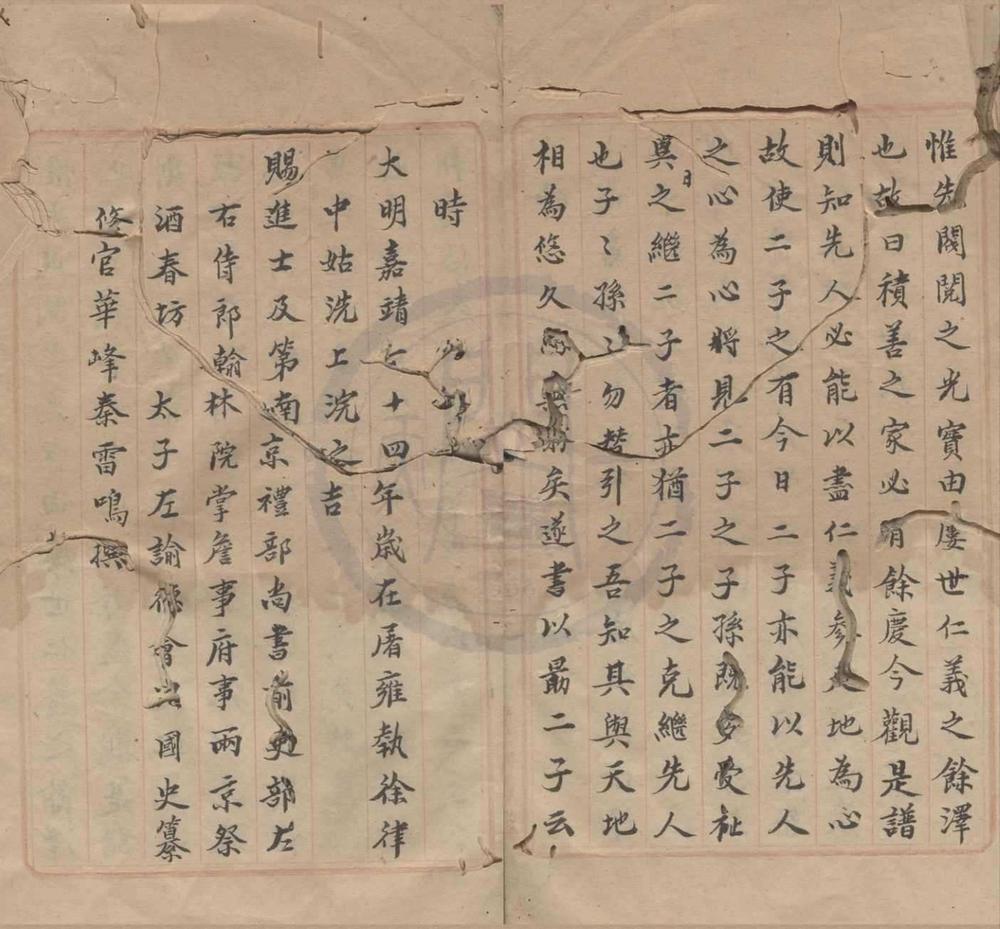 惟先閥閱之光寶由屢世仁義之餘澤
也故曰積善之家必有餘慶今觀是譜
則知先人必能以盡仁義參天地為心
故使二子之有今日二子亦能以先人
之心為心將見二子之子孫既多受祉
異日之繼二子者亦猶二子之克繼先人
也子〻孫〻勿替引之吾知其與天地
相為悠久而無窮矣遂書以勗二子云
時
大明嘉靖七十四年歲在屠雍執徐律
中姑洗上浣之吉
賜進士及第南京禮部尚書前吏部左
右侍郎翰林院掌詹事府事兩京祭
酒春坊 太子左諭德會典國史纂
修官華峰秦雷鳴撰